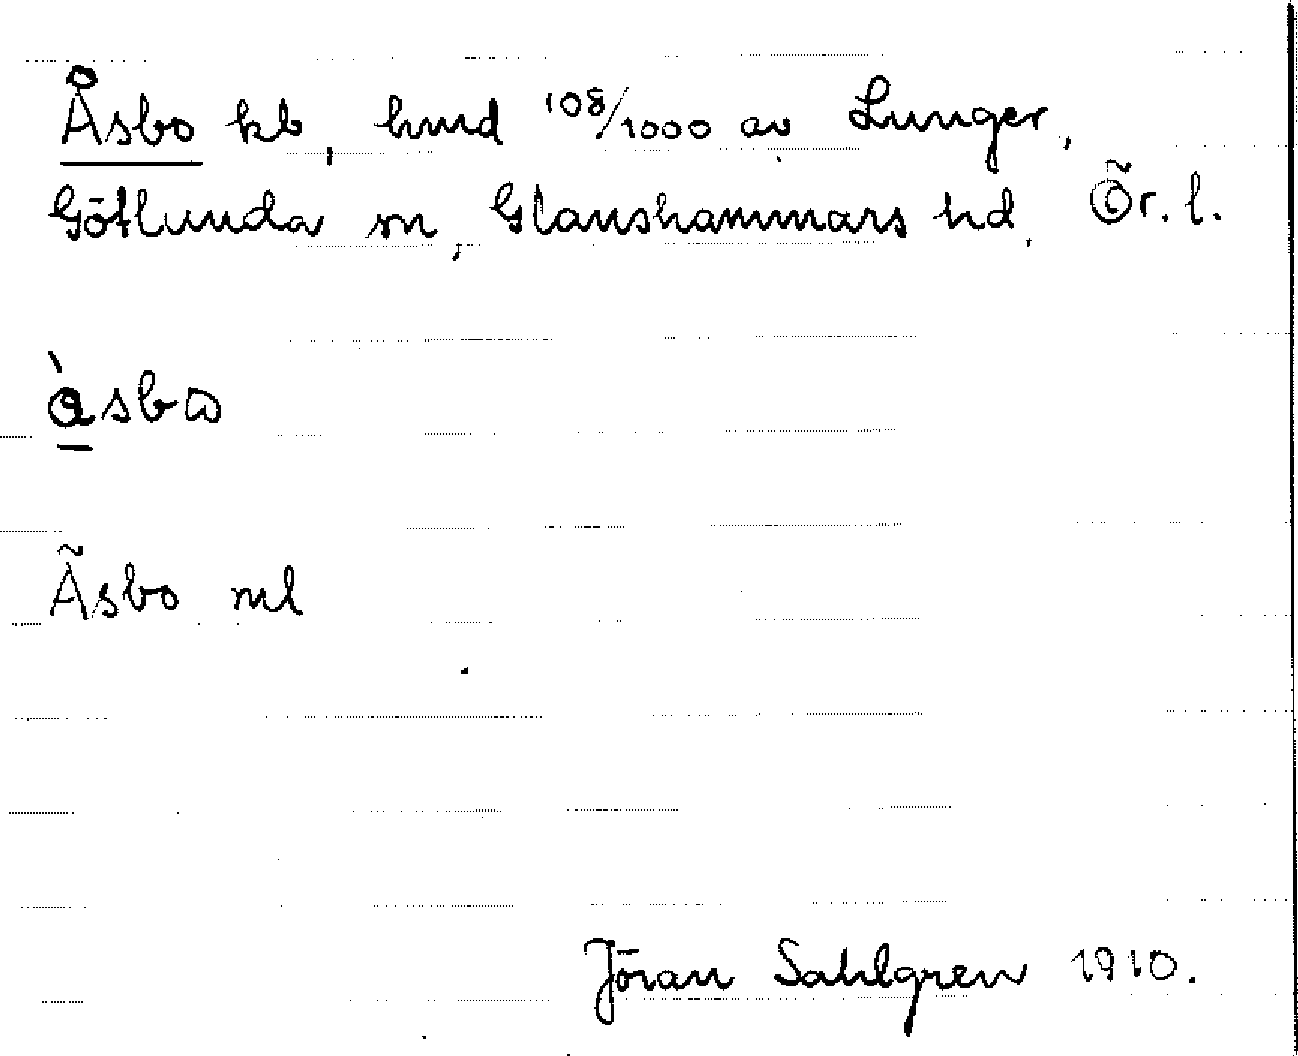 Åsbo kb, hmd 108/1000 av Lunger,
Götlunda sn, Glanshammars hd, Ör. l.
àsbω
Åsbo ml
Jöran Sahlgren 1910.